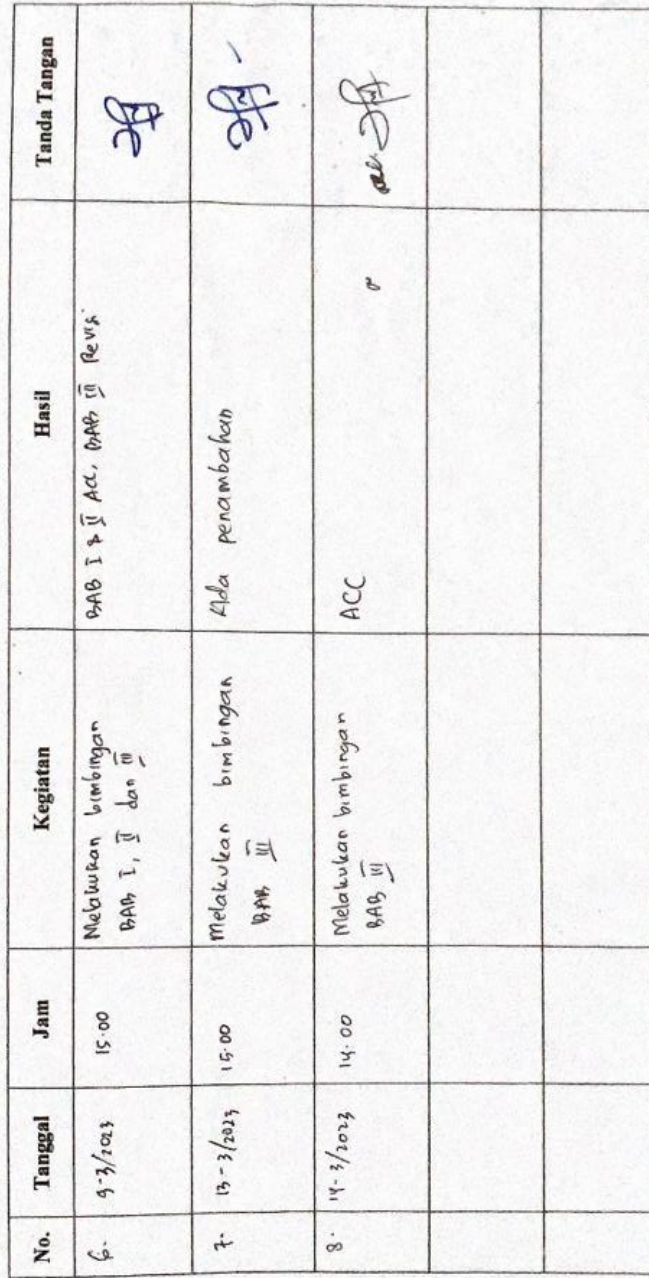 No. Tanggal Jam Kegiatan Hasil Tanda Tangan
6. 9-3/2023 15.00 Melakukan bimbingan BAB I & II Acc, BAB III Revisi
BAB I, II dan III
7. 13-3/2023 15.00 Melakukan bimbingan Ada penambahan
BAB III
8. 14-3/2023 14.00 Melakukan bimbingan ACC
BAB III